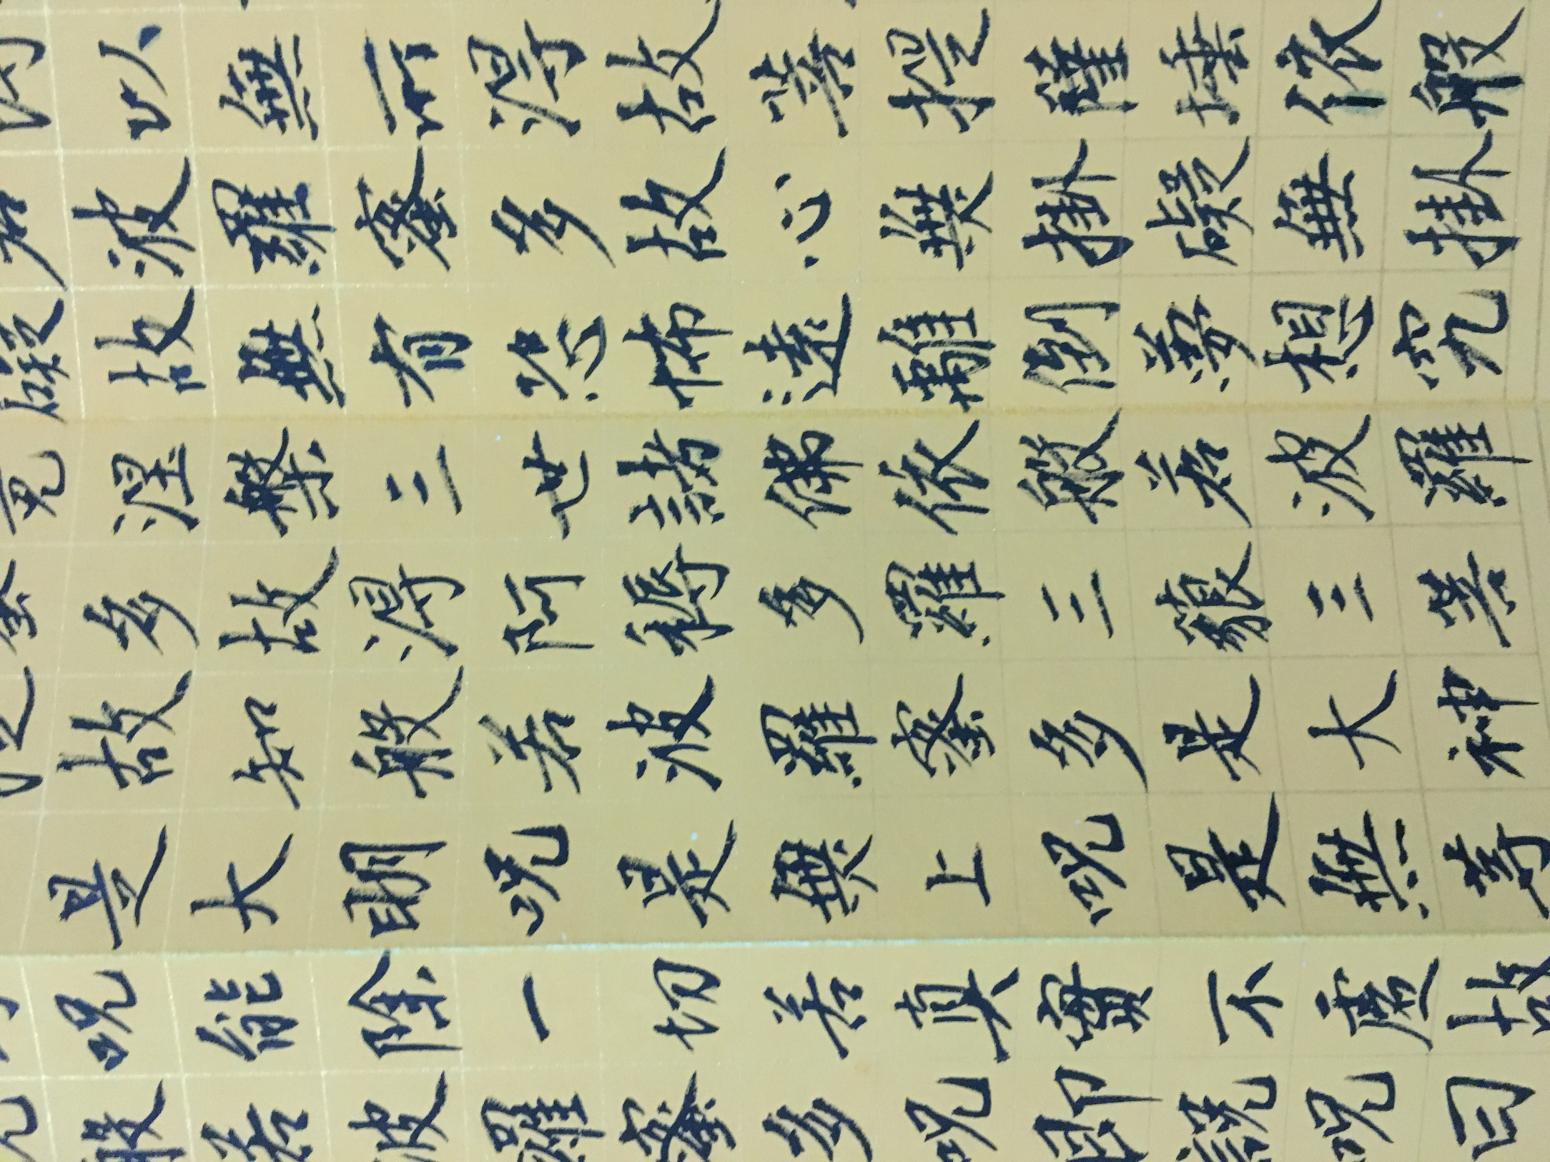 以無所得故菩提薩埵依般
若波羅蜜多故心無掛礙無掛
礙故無有恐怖遠離倒夢想究
竟涅槃三世諸佛依般若波羅
蜜多故得阿耨多羅三藐三菩
提故知般若波羅蜜多是大神
是大明咒是無上咒是無等
咒能除一切苦真實不虛故
般若波羅蜜多咒即說咒曰